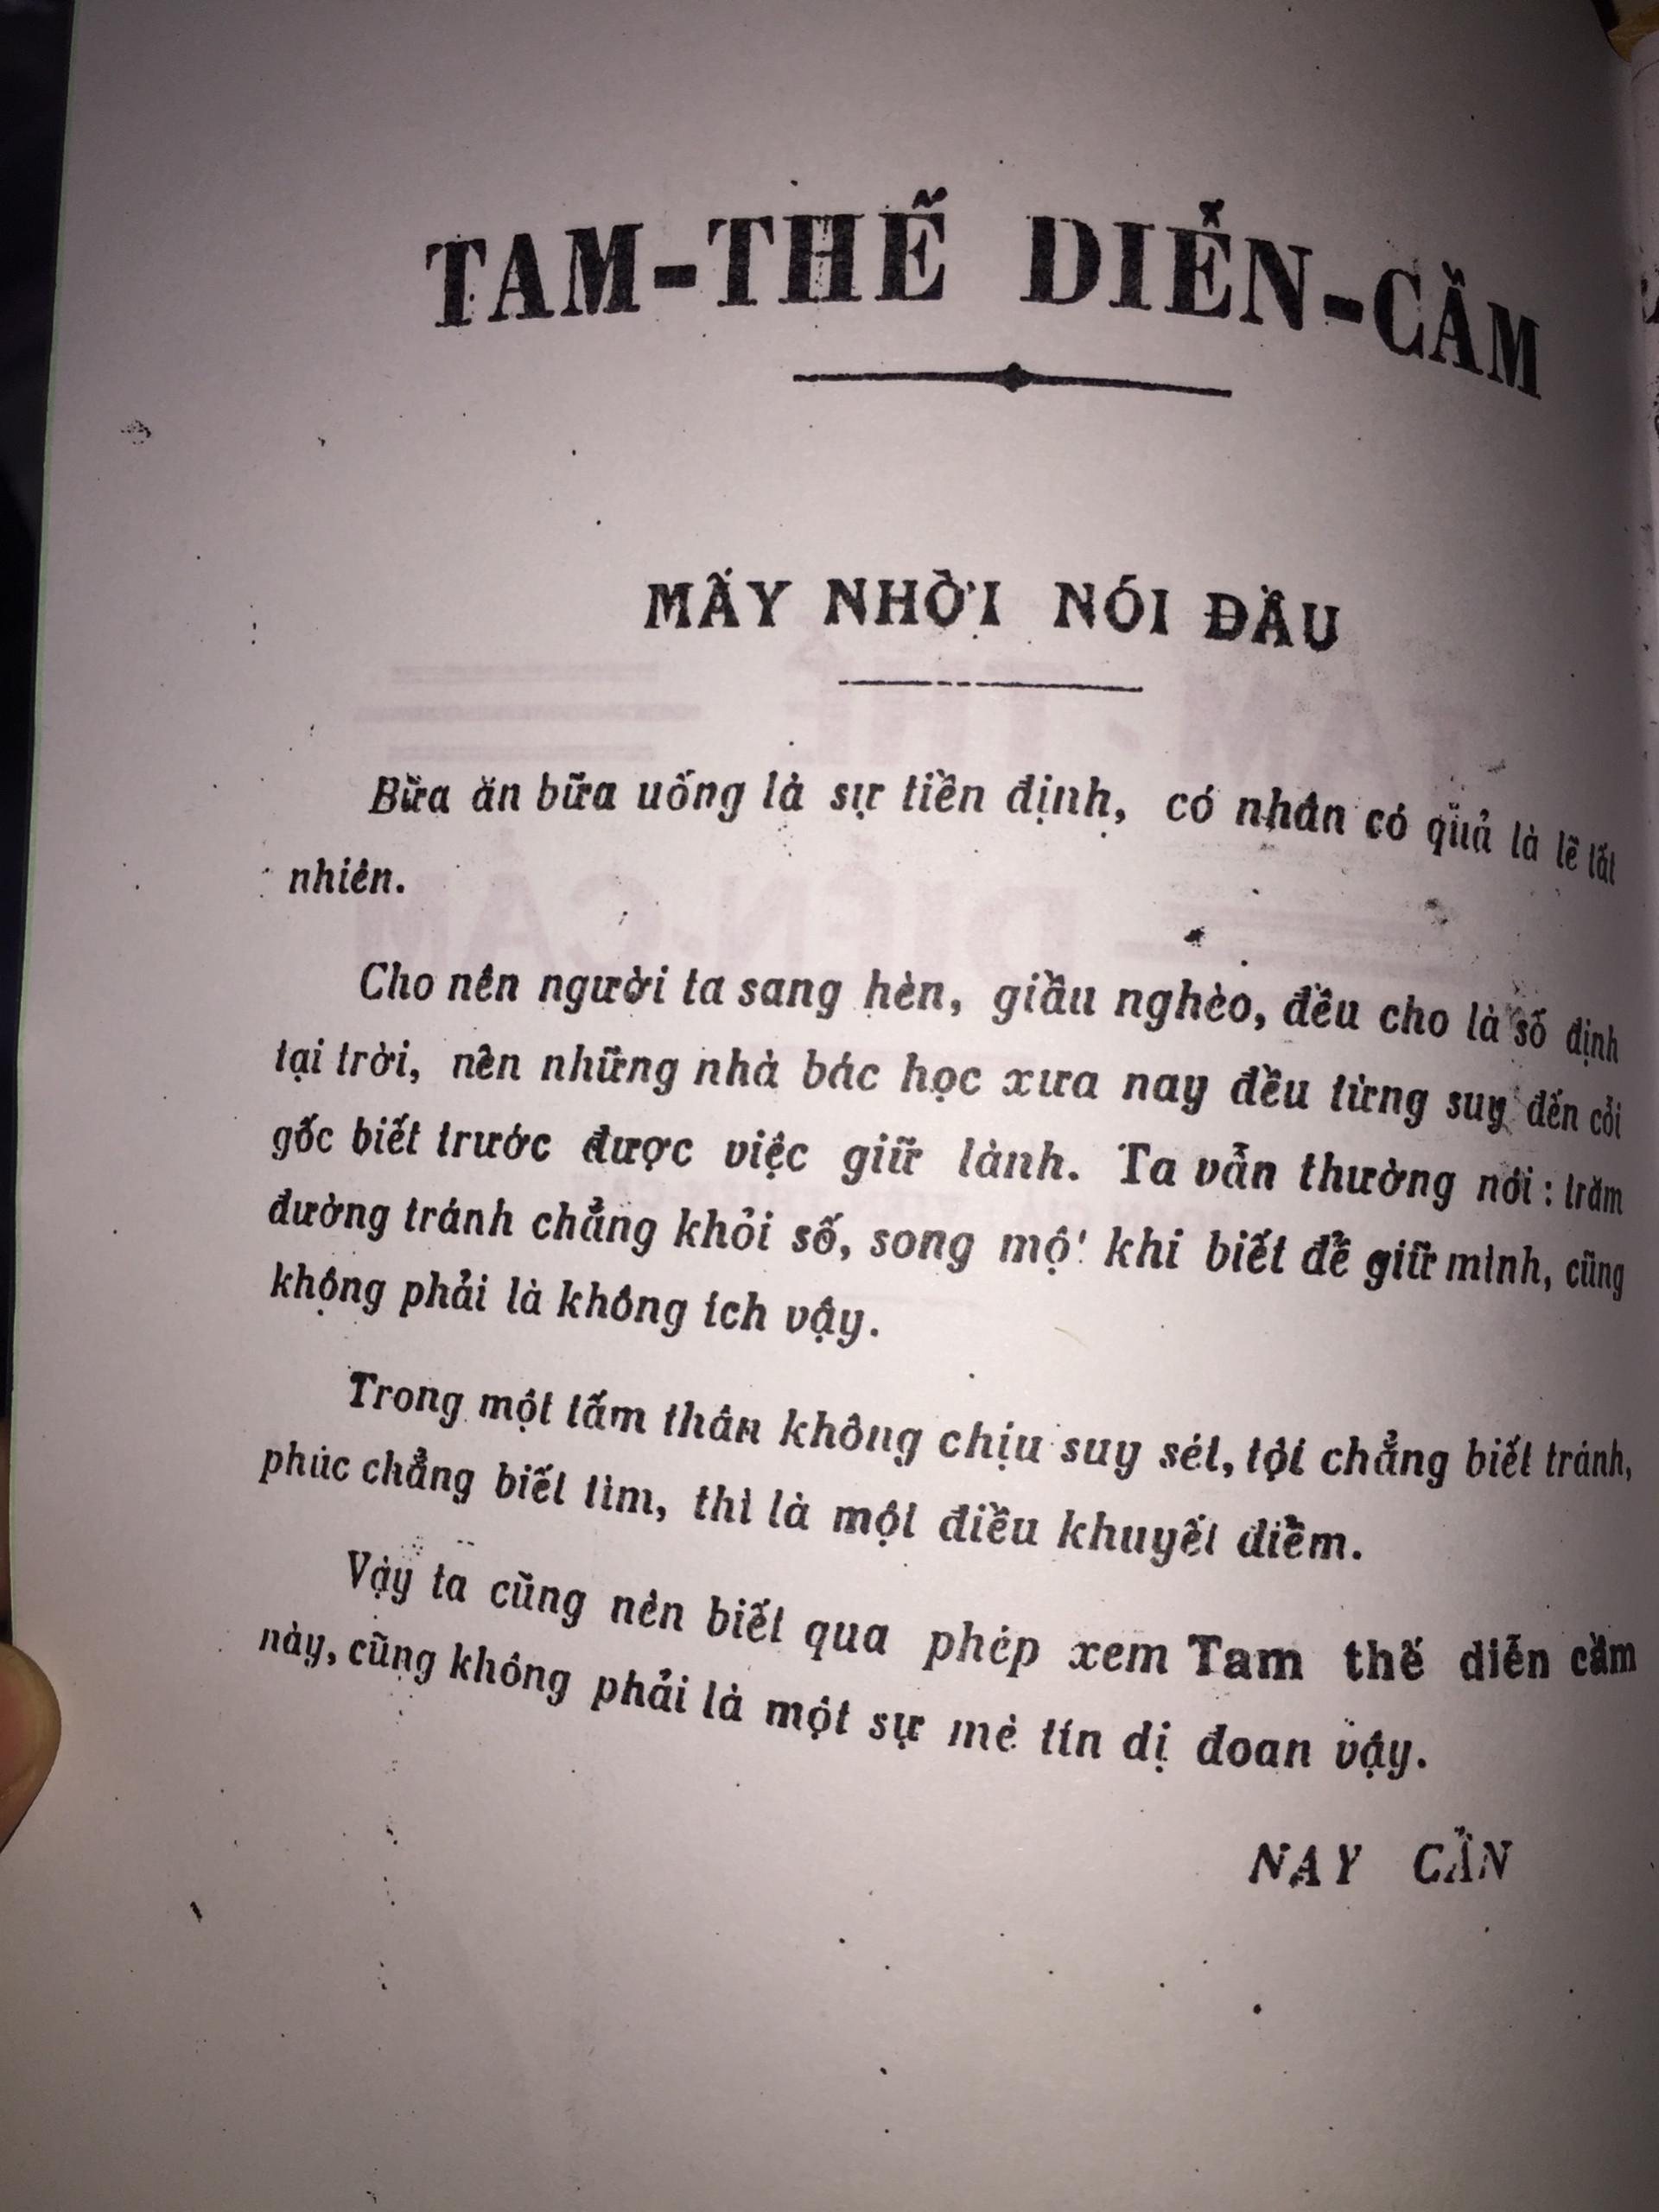 TAM-THẾ DIỄN-CẦM
MẤY NHỜI NÓI ĐẦU
Bữa ăn bữa uống là sự tiền định, có nhân có quả là lẽ tất
nhiên.
Cho nên người ta sang hèn, giầu nghèo, đều cho là số định
tại trời, nên những nhà bác học xưa nay đều từng suy đến cỗi
gốc biết trước được việc giữ lành. Ta vẫn thường nói : trăm
đường tránh chẳng khỏi số, song một khi biết để giữ mình, cũng
không phải là không ích vậy.
Trong một tấm thân không chịu suy sét, tội chẳng biết tránh,
phúc chẳng biết tìm, thì là một điều khuyết điểm.
Vậy ta cũng nên biết qua phép xem Tam thế diễn cầm
này, cũng không phải là một sự mê tín dị đoan vậy.
NAY CẦN